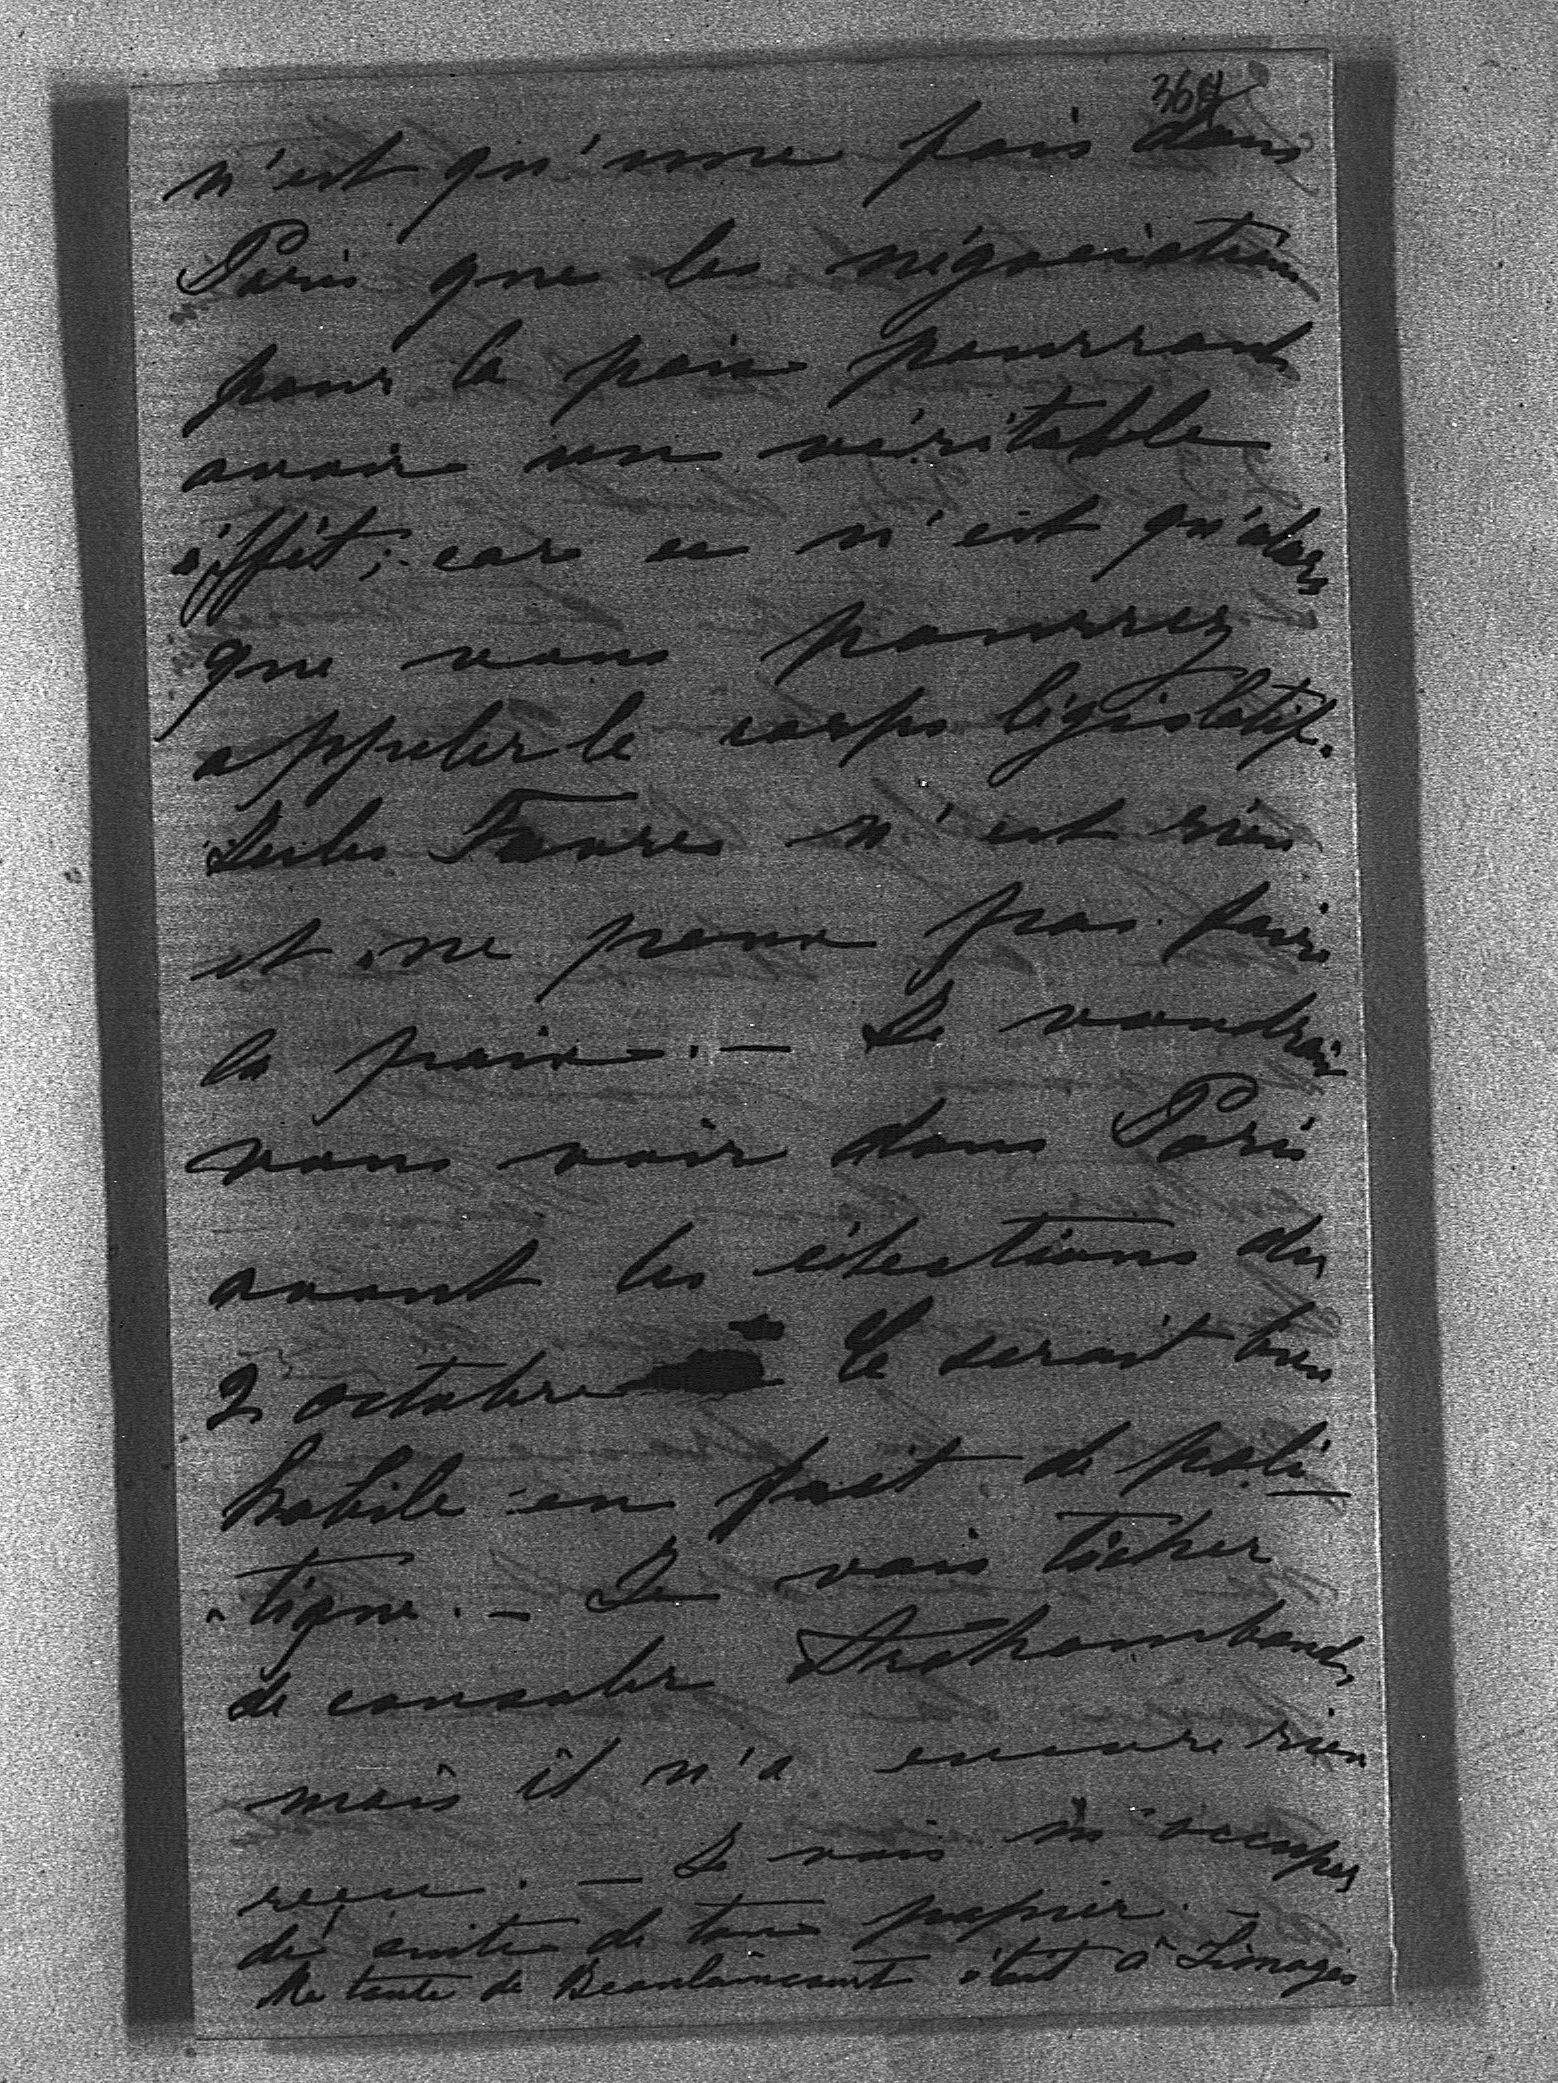 n'est qu'une fois dans
Paris que les négociations
pour la paix pourront
avoir un véritable
éffèt; car ce n'est qu'alors
que vous pourrez
appeler le corps législatif.
Jules Favres n'est rien
et ne peux pas faire
la paix. — Je voudrais
vous voir dans Paris
avant les éléctions du
2 octobre Ce serait bien
habile en fait de poli-
-tique. — Je vais tâcher
de consoler Archambaud,
mais il n'a encore rien
reçu. — Je vais m'occuper
de suite de ton papier. —
Ma tante de Beaulaincourt était à Limoges